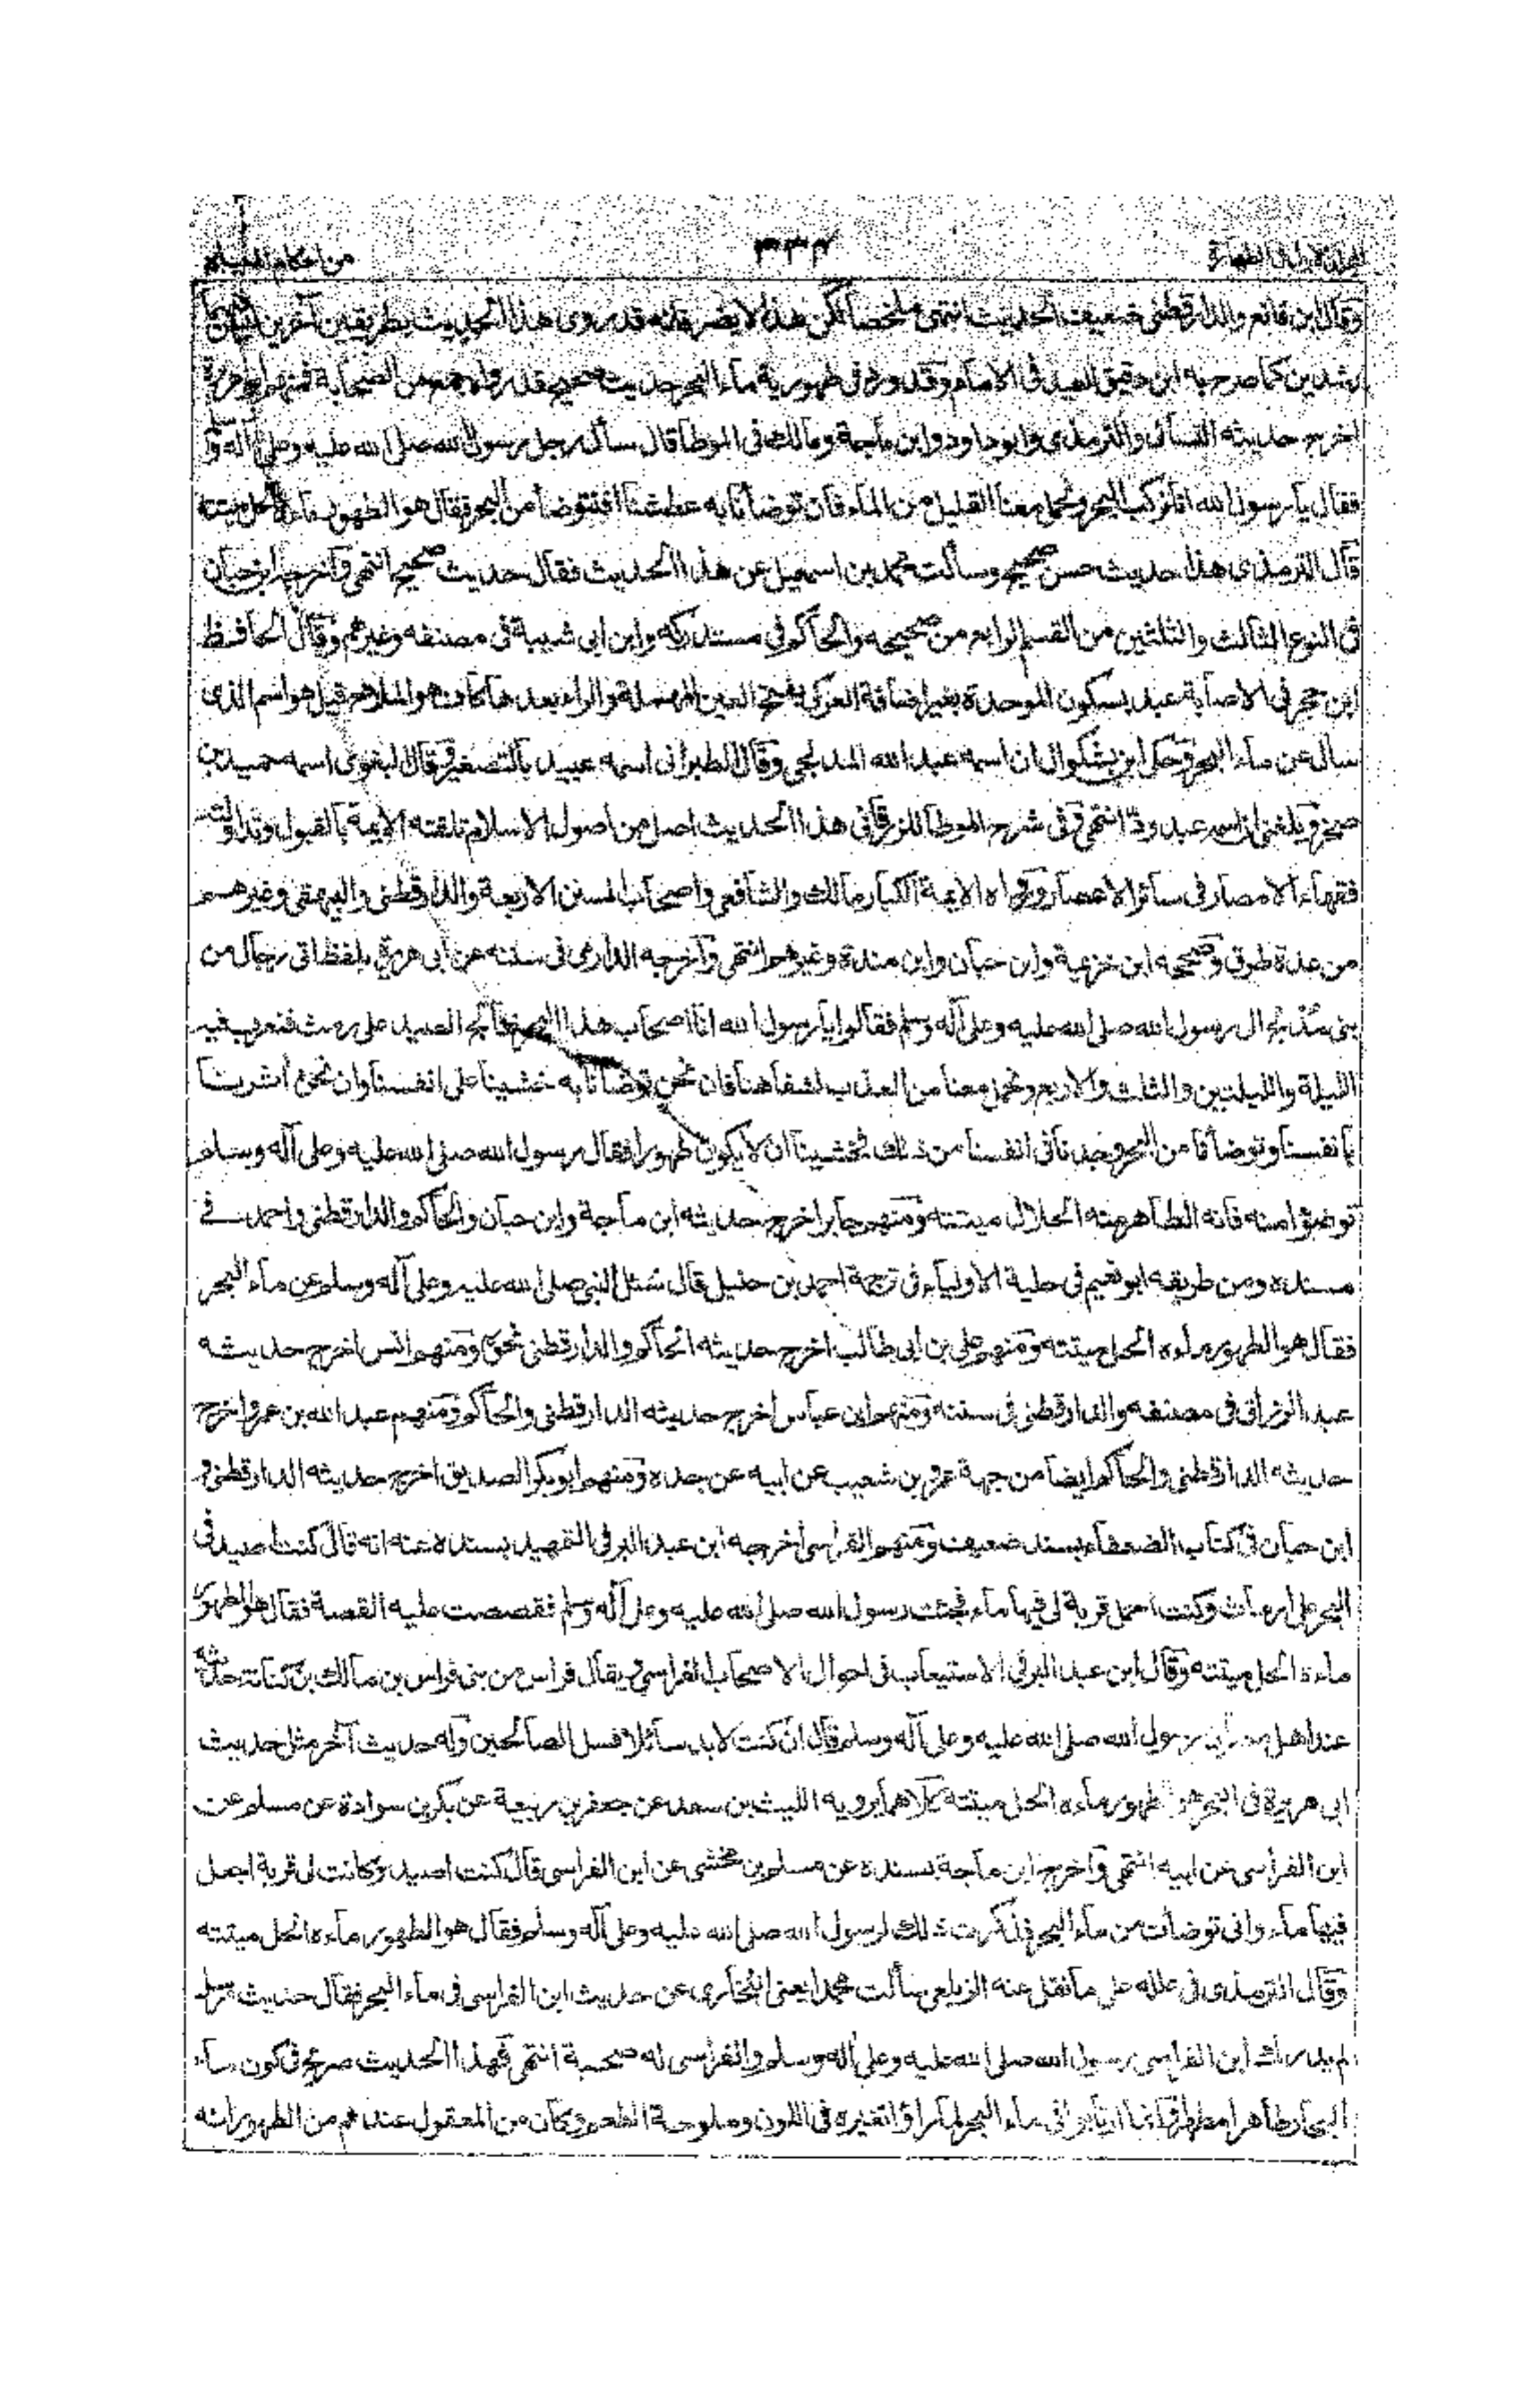 من احكام المياه
وقال ابن قانع والدارقطني ضعيف الحديث انتهى ملخصا لكن هذا لا يضر فانه قد روى هذا الحديث بطريقين آخرين
رشدين كما صرح به ابن دقيق العيد في الامام وقد ورد في طهورية ماء البحر حديث صحيح قد رواه جمع من الصحابة فمنهم ابو هريرة
اخرج حديثه النسائي والترمذي وابو داود وابن ماجة ومالك في الموطا قال سأل رجل رسول الله صلى الله عليه وعلى آله
فقال يا رسول الله انا نركب البحر ونحمل معنا القليل من الماء فان توضأنا به عطشنا افنتوضأ من البحر فقال هو الطهور ماءه الحل ميتته
قال الترمذي هذا حديث حسن صحيح وسألت محمد بن اسمعيل عن هذا الحديث فقال حديث صحيح انتهى واخرجه ابن حبان
في النوع الثالث والثلثين من القسم الرابع من صحيحه والحاكم في مستدركه وابن ابي شيبة في مصنفه وغيرهم وقال الحافظ
ابن حجر في الاصابة عبد بسكون الموحدة بغير اضافة العركي بفتح العين المهملة والراء بعدها كاف هو الملاح قيل هو اسم الذي
سأل عن ماء البحر وحكى ابن بشكوال ان اسمه عبد الله المدلجي وقال الطبراني اسمه عبيد بالتصغير وقال البغوي اسمه حميد بن
صخر وبلغني ان اسمه عبد ود انتهى وفي شرح الموطا للزرقاني هذا الحديث اصل من اصول الاسلام تلقته الايمة بالقبول وتداولته
فقهاء الامصار في سائر الاعصار ورواه الايمة الكبار مالك والشافعي واصحاب السنن الاربعة والدارقطني والبيهقي وغيرهم
من عدة طرق وصححه ابن خزيمة وابن حبان وابن مندة وغيرهم انتهى واخرجه الدارمي في سننه عن ابي هريرة بلفظ اتى رجال من
بني مدلج الى رسول الله صلى الله عليه وعلى آله وسلم فقالوا يا رسول الله انا اصحاب هذا البحر نعالج الصيد على رمث فنعزب فيه
الليلة والليلتين والثلث والاربع ونحمل معنا من العذب لشفاهنا فان نحن توضأنا به خشينا على انفسنا وان نحن أشربنا
بانفسنا وتوضأنا من البحر وجدنا في انفسنا من ذلك فخشينا ان لا يكون طهورا فقال رسول الله صلى الله عليه وعلى آله وسلم
توضؤا منه فانه الطاهر منه الحلال ميتته ومنهم جابر اخرج حديثه ابن ماجة وابن حبان والحاكم والدارقطني واحمد في
مسنده ومن طريقه ابو نعيم في حلية الاولياء في ترجمة احمد بن حنبل قال سئل النبي صلى الله عليه وعلى آله وسلم عن ماء البحر
فقال هو الطهور ماءه الحل ميتته ومنهم علي بن ابي طالب اخرج حديثه الحاكم والدارقطني نحوه ومنهم انس اخرج حديثه
عبد الرزاق في مصنفه والدارقطني في سننه ومنهم ابن عباس اخرج حديثه الدارقطني والحاكم ومنهم عبد الله بن عمرو اخرج
حديثه الدارقطني والحاكم ايضا من جهة عمرو بن شعيب عن ابيه عن جده ومنهم ابو بكر الصديق اخرج حديثه الدارقطني و
ابن حبان في كتاب الضعفاء بسند ضعيف ومنهم الفراسي اخرجه ابن عبد البر في التمهيد بسنده عنه انه قال كنت اصيد في
البحر على ارماث وكنت احمل قربة لي فيها ماء فجئت رسول الله صلى الله عليه وعلى آله وسلم فقصصت عليه القصة فقال هو الطهور
ماءه الحل ميتته وقال ابن عبد البر في الاستيعاب في احوال الاصحاب الفراسي ويقال فراس من بني فراس بن مالك بن كنانة حديثه
عند اهل مصر ان رسول الله صلى الله عليه وعلى آله وسلم قال ان كنت لا بد سائلا فسل الصالحين وله حديث آخر مثل حديث
ابي هريرة في البحر هو الطهور ماءه الحل ميتته كلاهما يرويه الليث بن سعد عن جعفر بن ربيعة عن بكر بن سوادة عن مسلم عن
ابن الفراسي عن ابيه انتهى واخرج ابن ماجة بسنده عن مسلم بن مخشي عن ابن الفراسي قال كنت اصيد وكانت لي قربة اجعل
فيها ماء واني توضأت من ماء البحر فذكرت ذلك لرسول الله صلى الله عليه وعلى آله وسلم فقال هو الطهور ماءه الحل ميتته
وقال الترمذي في علله على ما نقل عنه الزيلعي سألت محمدا يعني البخاري عن حديث ابن الفراسي في ماء البحر فقال حديث مرسل
لم يدرك ابن الفراسي رسول الله صلى الله عليه وعلى آله وسلم والفراسي له صحبة انتهى فهذا الحديث صريح في كون ماء
البحار طاهرا مطهرا وانما ارتابوا في ماء البحر لما رأوا تغيره في اللون وملوحة الطعم وكان من المعقول عندهم من الطهور انه